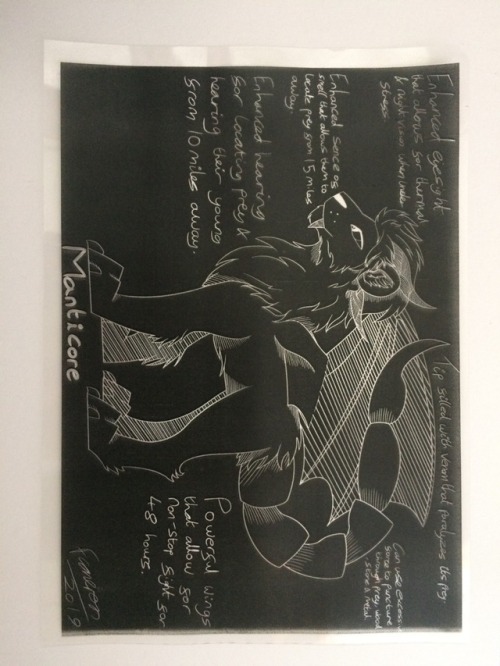 Enhanced eyesight
that allows for thermal
& night vision when under
stress.
Enhanced sence of
smell that allows them to
locate prey from 15 miles
away.
Enhanced hearing
for locating prey &
hearing their young
from 10 miles away.
Tip filled with venom that paralyzes its prey.
Can use excessive
force to puncture
through prey, wood,
stone & metal.
Powerful wings
that allow for
non-stop flight for
48 hours.
Manticore
2019